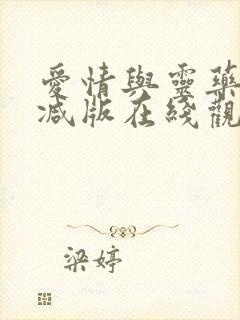 愛情與靈藥
减版在綫觀
梁婷